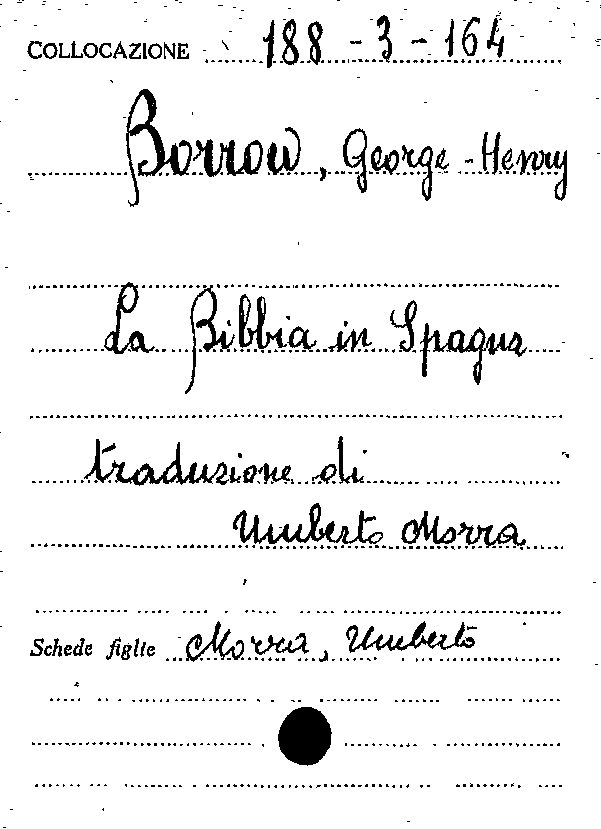 COLLOCAZIONE 188-3-164
Borrow, George-Henry
La Bibbia in Spagna
traduzione di
Umberto Morra
Schede figlie Morra, Umberto